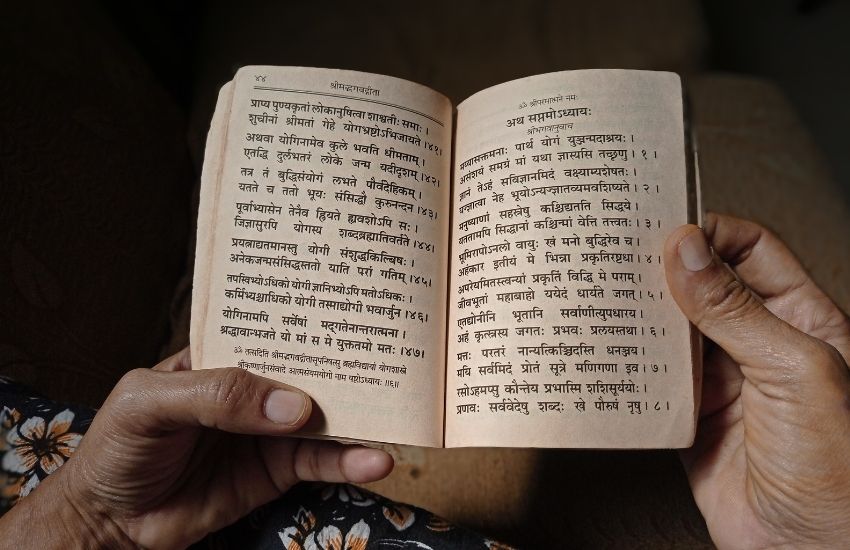 ४४
श्रीमद्भगवद्गीता
प्राप्य पुण्यकृतां लोकानुषित्वा शाश्वतीः समाः ।
शुचीनां श्रीमतां गेहे योगभ्रष्टोऽभिजायते ।४१।
अथवा योगिनामेव कुले भवति धीमताम् ।
एतद्धि दुर्लभतरं लोके जन्म यदीदृशम् ।४२।
तत्र तं बुद्धिसंयोगं लभते पौर्वदेहिकम् ।
यतते च ततो भूयः संसिद्धौ कुरुनन्दन ।४३।
पूर्वाभ्यासेन तेनैव ह्रियते ह्यवशोऽपि सः ।
जिज्ञासुरपि योगस्य शब्दब्रह्मातिवर्तते ।४४।
प्रयत्नाद्यतमानस्तु योगी संशुद्धकिल्बिषः ।
अनेकजन्मसंसिद्धस्ततो याति परां गतिम् ।४५।
तपस्विभ्योऽधिको योगी ज्ञानिभ्योऽपि मतोऽधिकः ।
कर्मिभ्यश्चाधिको योगी तस्माद्योगी भवार्जुन ।४६।
योगिनामपि सर्वेषां मद्गतेनान्तरात्मना ।
श्रद्धावान्भजते यो मां स मे युक्ततमो मतः ।४७।
ॐ तत्सदिति श्रीमद्भगवद्गीतासूपनिषत्सु ब्रह्मविद्यायां योगशास्त्रे
श्रीकृष्णार्जुनसंवादे आत्मसंयमयोगो नाम षष्ठोऽध्यायः ॥६॥
ॐ श्रीपरमात्मने नमः
अथ सप्तमोऽध्यायः
श्रीभगवानुवाच
मय्यासक्तमनाः पार्थ योगं युञ्जन्मदाश्रयः ।
असंशयं समग्रं मां यथा ज्ञास्यसि तच्छृणु । १ ।
ज्ञानं तेऽहं सविज्ञानमिदं वक्ष्याम्यशेषतः ।
यज्ज्ञात्वा नेह भूयोऽन्यज्ज्ञातव्यमवशिष्यते । २ ।
मनुष्याणां सहस्रेषु कश्चिद्यतति सिद्धये ।
यततामपि सिद्धानां कश्चिन्मां वेत्ति तत्त्वतः । ३ ।
भूमिरापोऽनलो वायुः खं मनो बुद्धिरेव च ।
अहंकार इतीयं मे भिन्ना प्रकृतिरष्टधा । ४ ।
अपरेयमितस्त्वन्यां प्रकृतिं विद्धि मे पराम् ।
जीवभूतां महाबाहो ययेदं धार्यते जगत् । ५ ।
एतद्योनीनि भूतानि सर्वाणीत्युपधारय ।
अहं कृत्स्नस्य जगतः प्रभवः प्रलयस्तथा । ६ ।
मत्तः परतरं नान्यत्किञ्चिदस्ति धनञ्जय ।
मयि सर्वमिदं प्रोतं सूत्रे मणिगणा इव । ७ ।
रसोऽहमप्सु कौन्तेय प्रभास्मि शशिसूर्ययोः ।
प्रणवः सर्ववेदेषु शब्दः खे पौरुषं नृषु । ८ ।